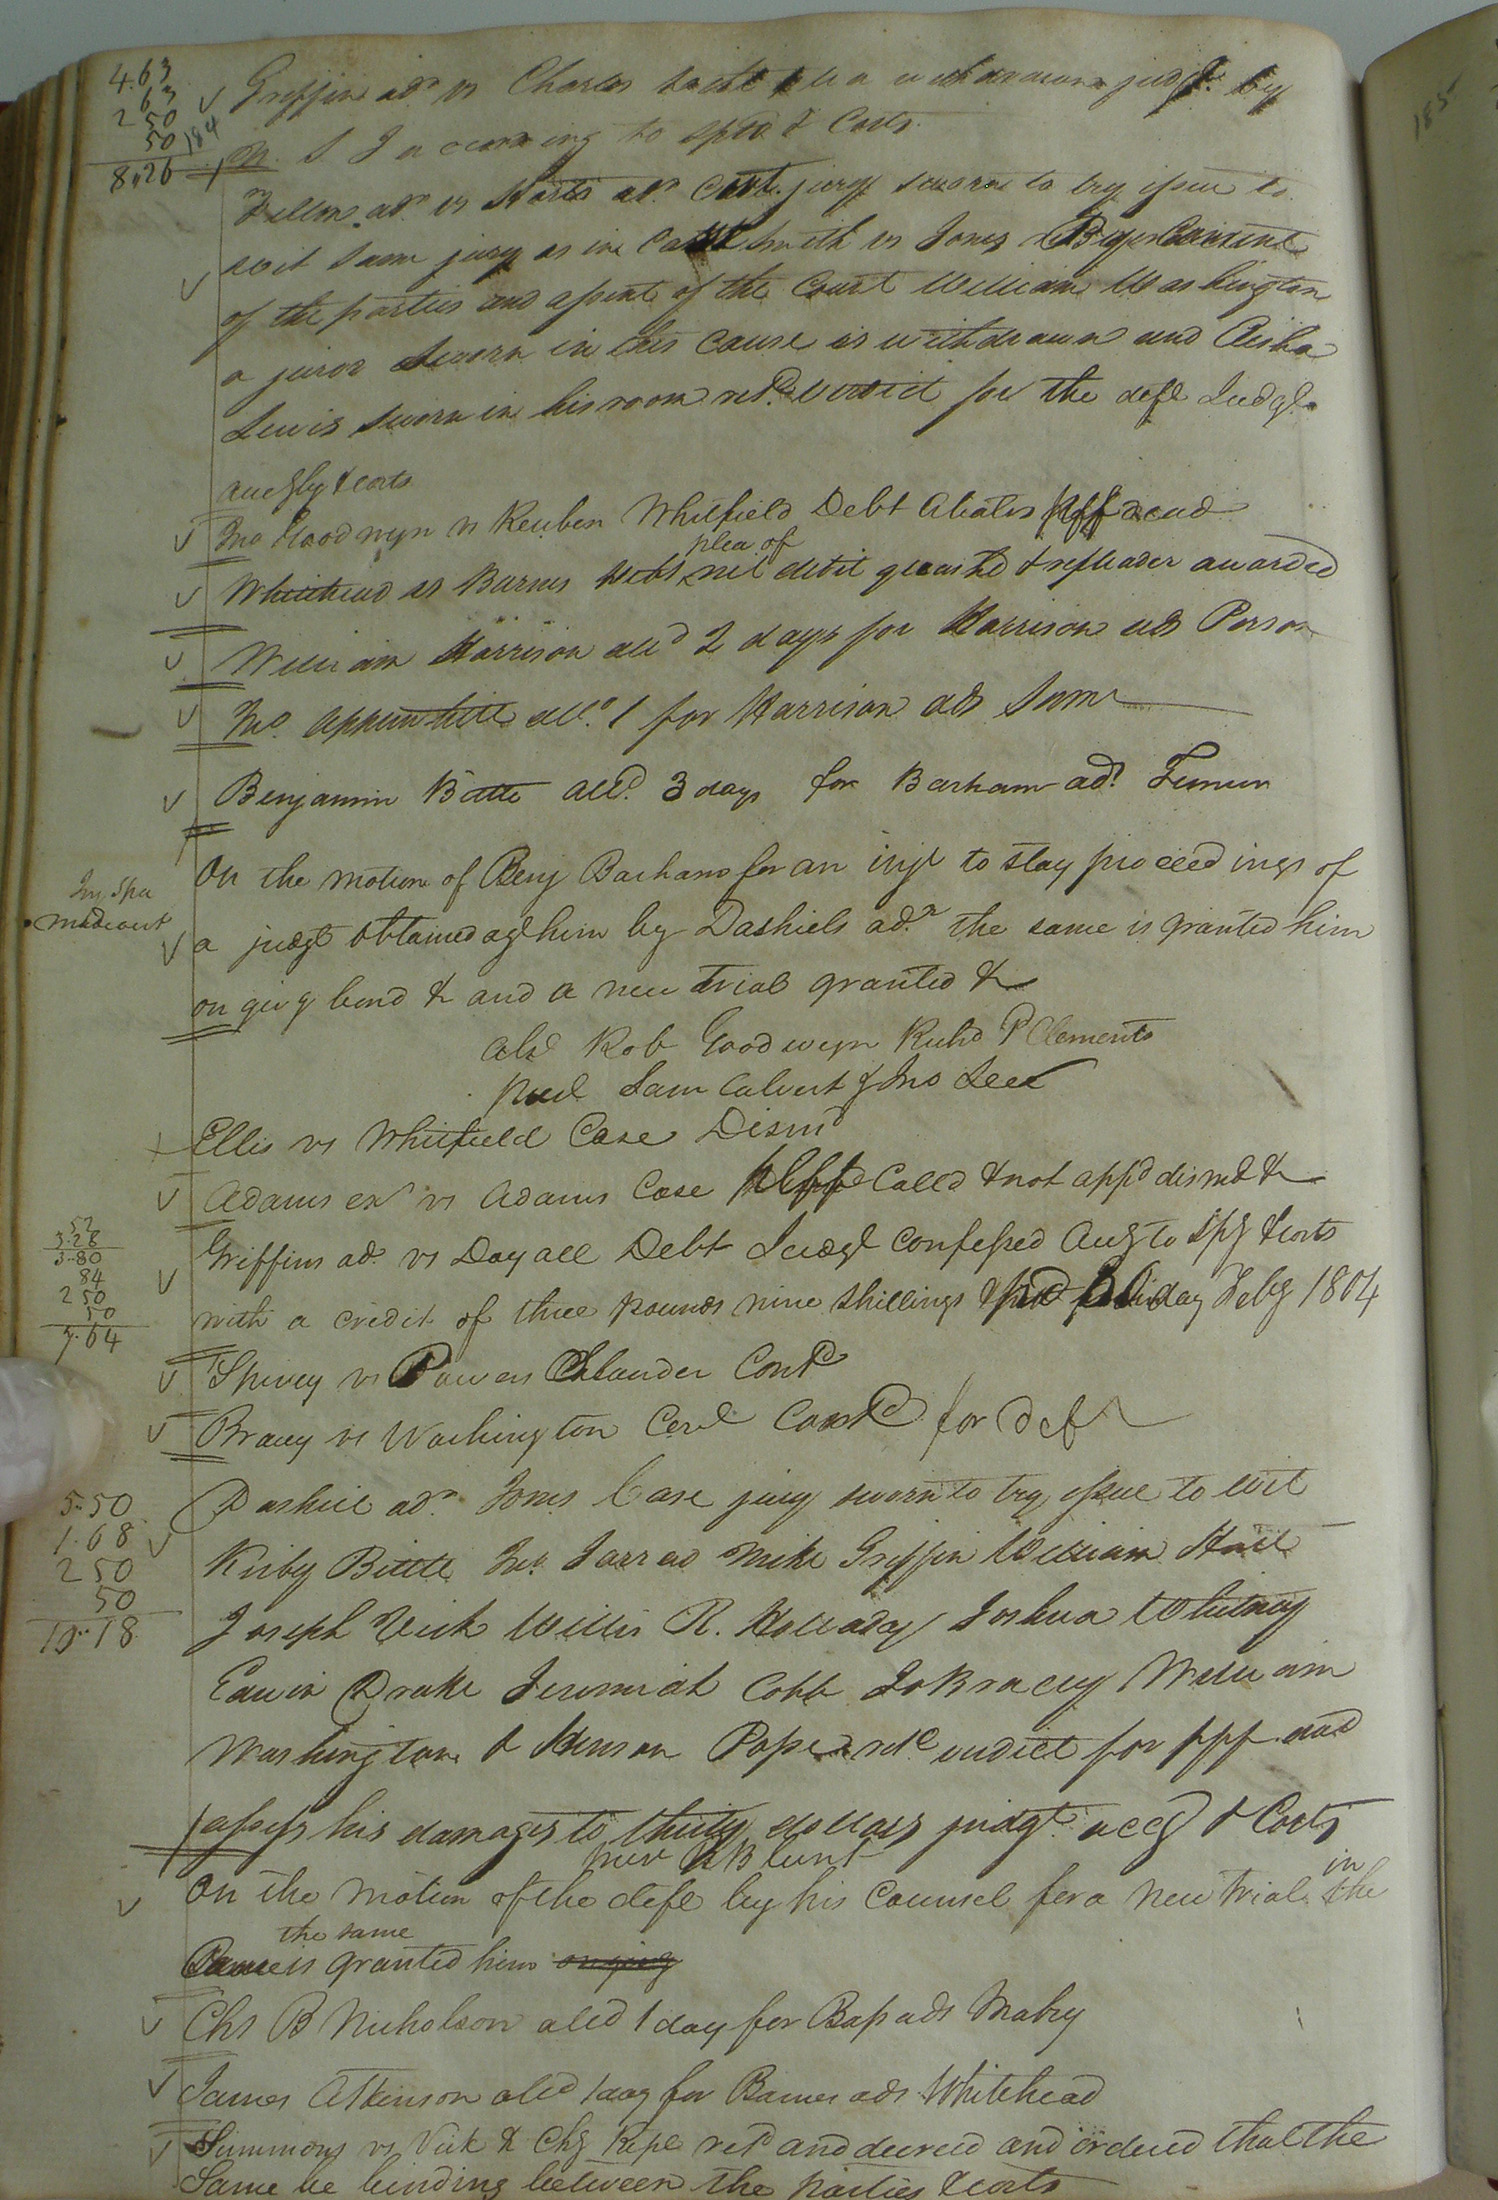 4.63
63
2 50
50
8.26
184
Griffin adr vs Charles judgt by
N. S. I according to spt & Costs
adr vs adr Case jury sworn to try issue to
wit same jury as in Case Smith vs Jones & By Consent
of the parties and assent of the Court William Washington
a juror sworn in this Cause is withdrawn and
Lewis sworn in his room retd verdict for the deft Judgt
accgly & costs
Jno Goodwyn vs Reuben Whitfield Debt Abates plff dead
plea of
Whitehead vs Barnes Debt nil debit quashd & repleader awarded
William Harrison alld 2 days for Harrison ads Person
Jno. Applewhite alld. 1 for Harrison ads Same
Benjamin Bittle alld. 3 days for Barham ads
Inj Spa
made out
On the motion of Benj Barham for an injt to stay proceedings of
a judgt obtained agt him by Dashiels adr the same is granted him
on givg bond & and a new trial granted &
Abs Rob Goodwyn Richd P Clements
Pred Sam Calvert & Jno
Ellis vs Whitfield Case Dismd
Adams exr vs Adams Case plff Called & not appd dismd &
52
3.28
3.80
84
2 50
50
7.64
Griffins adr vs Dayall Debt Judgt Confessed Accg to spy & costs
with a credit of three pounds nine shillings & day Feby 1804
Spivey vs Powers Slander Contd
Bracy vs Washington Cert Contd for Deft
5.50
1.68
2 50
50
10.18
Dashiel adr Jones Case jury sworn to try issue to wit
Kirby Bittle Jno. Jarrad Mike Griffin William Hail
Joseph Vick Willis R. Holladay Joshua Whitney
Edwin Drake Jeremiah Cobb Jo Bracey William
Washington & Henson Pope retd verdict for plff and
assess his damages to thirty dollars judgt accg & Costs
Blunt
On the motion of the deft by his Counsel for a new trial in the
the same
Cause is granted him on givg
Chs B Nicholson alld 1 day for Bass ads Mabry
James Atkinson alld 1 day for Barnes ads Whitehead
Simmons vs Vick & Chy Repe retd and decreed and ordered that the
Same be binding between the parties & costs
185